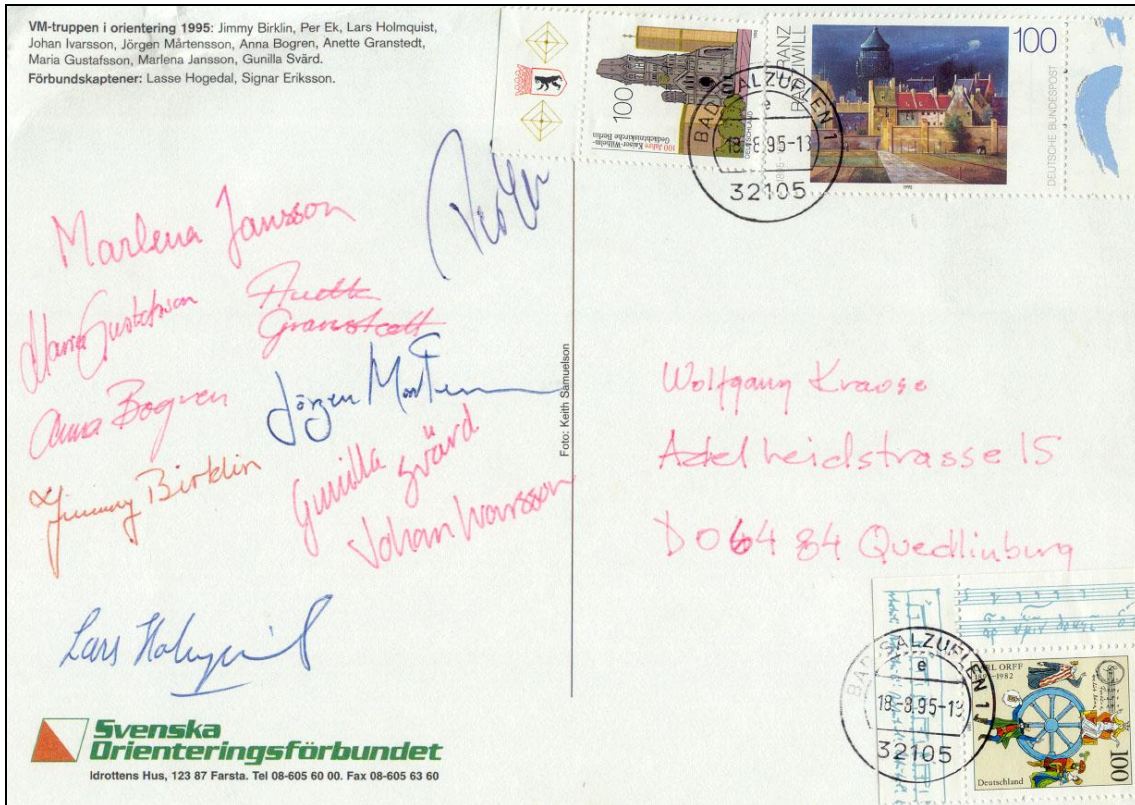 VM-truppen i orientering 1995: Jimmy Birklin, Per Ek, Lars Holmquist,
Johan Ivarsson, Jörgen Mårtensson, Anna Bogren, Anette Granstedt,
Maria Gustafsson, Marlena Jansson, Gunilla Svärd.
Förbundskaptener: Lasse Hogedal, Signar Eriksson.
100
100 Jahre Kaiser-Wilhelm-
Gedächtniskirche Berlin
DEUTSCHLAND
FRANZ
RADZIWILL
100
DEUTSCHE BUNDESPOST
BAD SALZUFLEN 1
e
18.-8.95-13
32105
Per Ek
Marlena Jansson
Maria Gustafsson
Anette
Granstedt
Anna Bogren
Jörgen
Jimmy Birklin
Gunilla
Svärd
Johan Ivarsson
Lars
Foto: Keith Samuelson
Wolfgang Krause
Adelheidstrasse 15
D 06484 Quedlinburg
BAD SALZUFLEN 1
e
18.-8.95-13
32105
CARL ORFF
1895–1982
Deutschland
100
Svenska
Orienteringsförbundet
Idrottens Hus, 123 87 Farsta. Tel 08-605 60 00. Fax 08-605 63 60